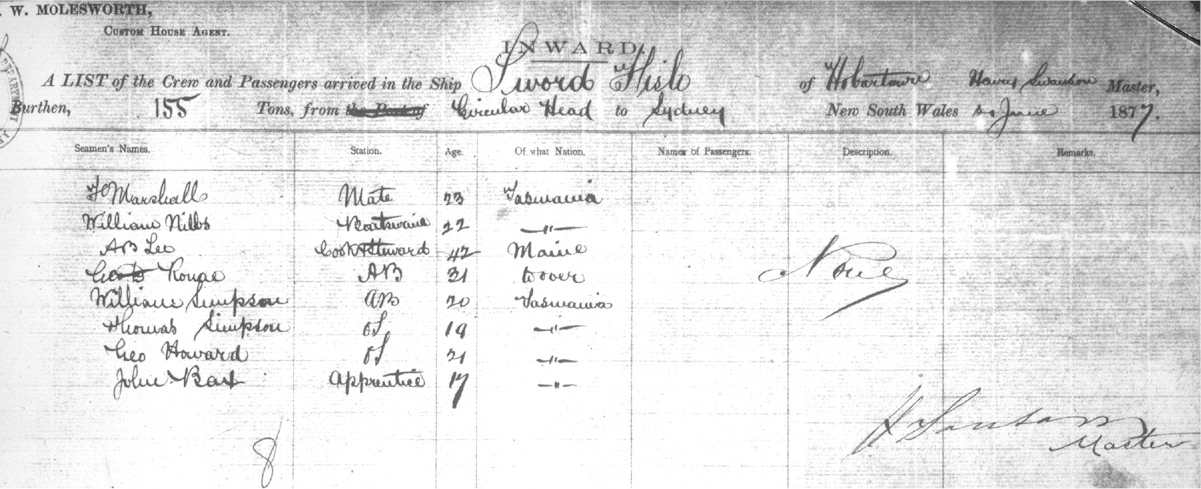 W. MOLESWORTH,
CUSTOM HOUSE AGENT.
INWARD
A LIST of the Crew and Passengers arrived in the Ship Sword Fish of Hobartown Master,
Burthen, 155 Tons, from the Port of Circular Head to Sydney New South Wales June 1877.
Seamen's Names. Station. Age. Of what Nation. Names of Passengers. Description. Remarks.
Marshall Mate 23 Tasmania
William Nibbs Boatswain 22 —"—
AB Lee Cook & Steward 42 Maine
31 Dover
William Simpson AB 20 Tasmania
Thomas Simpson OS 19 —"—
Geo Howard OS 21 —"—
John Apprentice 17 —"—
None
8
Master